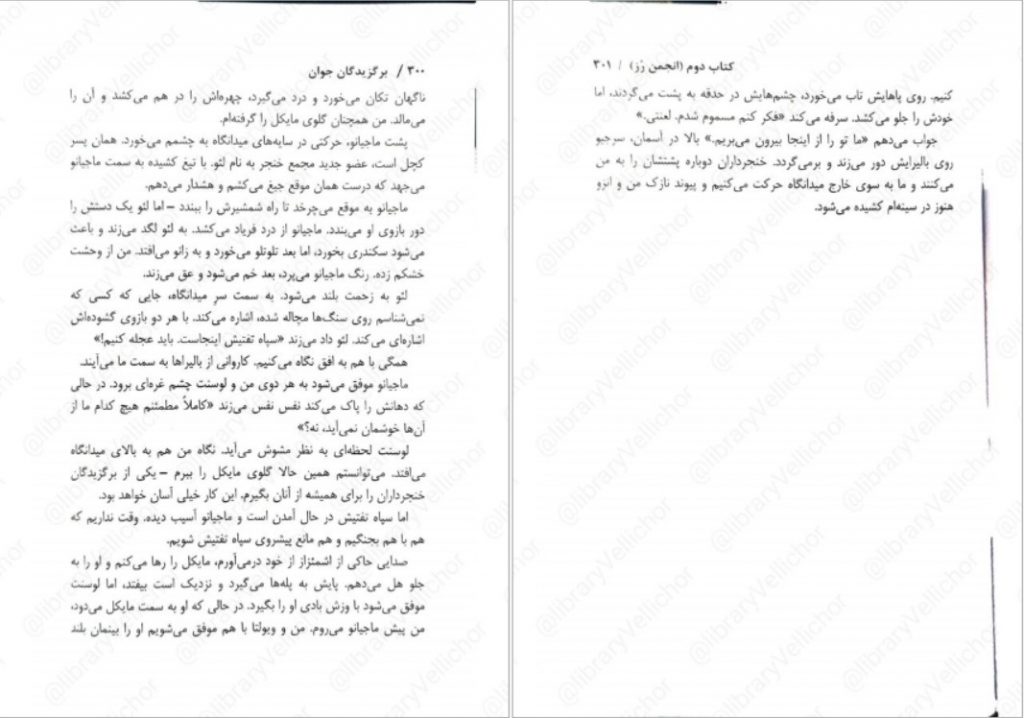 ۳۰۰ / برگزیدگان جوان
ناگهان تکان می‌خورد و درد می‌گیرد، چهره‌اش را در هم می‌کشد و آن را
می‌مالد. من همچنان گلوی مایکل را گرفته‌ام.
پشت ماجیانو، حرکتی در سایه‌های میدانگاه به چشمم می‌خورد. همان پسر
کچل است، عضو جدید مجمع خنجر به نام لئو. با تیغ کشیده به سمت ماجیانو
می‌جهد که درست همان موقع جیغ می‌کشم و هشدار می‌دهم.
ماجیانو به موقع می‌چرخد تا راه شمشیرش را ببندد – اما لئو یک دستش را
دور بازوی او می‌بندد. ماجیانو از درد فریاد می‌کشد. به لئو لگد می‌زند و باعث
می‌شود سکندری بخورد، اما بعد تلوتلو می‌خورد و به زانو می‌افتد. من از وحشت
خشکم زده. رنگ ماجیانو می‌پرد، بعد خم می‌شود و عق می‌زند.
لئو به زحمت بلند می‌شود. به سمت سرِ میدانگاه، جایی که کسی که
نمی‌شناسم روی سنگ‌ها مچاله شده، اشاره می‌کند. با هر دو بازوی گشوده‌اش
اشاره‌ای می‌کند. لئو داد می‌زند «سپاه تفتیش اینجاست. باید عجله کنیم!»
همگی با هم به افق نگاه می‌کنیم. کاروانی از بالیراها به سمت ما می‌آیند.
ماجیانو موفق می‌شود به هر دوی من و لوسنت چشم غره‌ای برود. در حالی
که دهانش را پاک می‌کند نفس نفس می‌زند «کاملاً مطمئنم هیچ کدام ما از
آن‌ها خوشمان نمی‌آید، نه؟»
لوسنت لحظه‌ای به نظر مشوش می‌آید. نگاه من هم به بالای میدانگاه
می‌افتد. می‌توانستم همین حالا گلوی مایکل را ببرم – یکی از برگزیدگان
خنجرداران را برای همیشه از آنان بگیرم. این کار خیلی آسان خواهد بود.
اما سپاه تفتیش در حال آمدن است و ماجیانو آسیب دیده. وقت نداریم که
هم با هم بجنگیم و هم مانع پیشروی سپاه تفتیش شویم.
صدایی حاکی از اشمئزاز از خود درمی‌آورم، مایکل را رها می‌کنم و او را به
جلو هل می‌دهم. پایش به پله‌ها می‌گیرد و نزدیک است بیفتد، اما لوسنت
موفق می‌شود با وزش بادی او را بگیرد. در حالی که او به سمت مایکل می‌دود،
من پیش ماجیانو می‌روم. من و ویولتا با هم موفق می‌شویم او را بینمان بلند
کتاب دوم (انجمن رُز) / ۳۰۱
کنیم. روی پاهایش تاب می‌خورد، چشم‌هایش در حدقه به پشت می‌گردند، اما
خودش را جلو می‌کشد. سرفه می‌کند «فکر کنم مسموم شدم. لعنتی.»
جواب می‌دهم «ما تو را از اینجا بیرون می‌بریم.» بالا در آسمان، سرجیو
روی بالیرایش دور می‌زند و برمی‌گردد. خنجرداران دوباره پشتشان را به من
می‌کنند و ما به سوی خارج میدانگاه حرکت می‌کنیم و پیوند نازک من و انزو
هنوز در سینه‌ام کشیده می‌شود.
@libraryVellichor